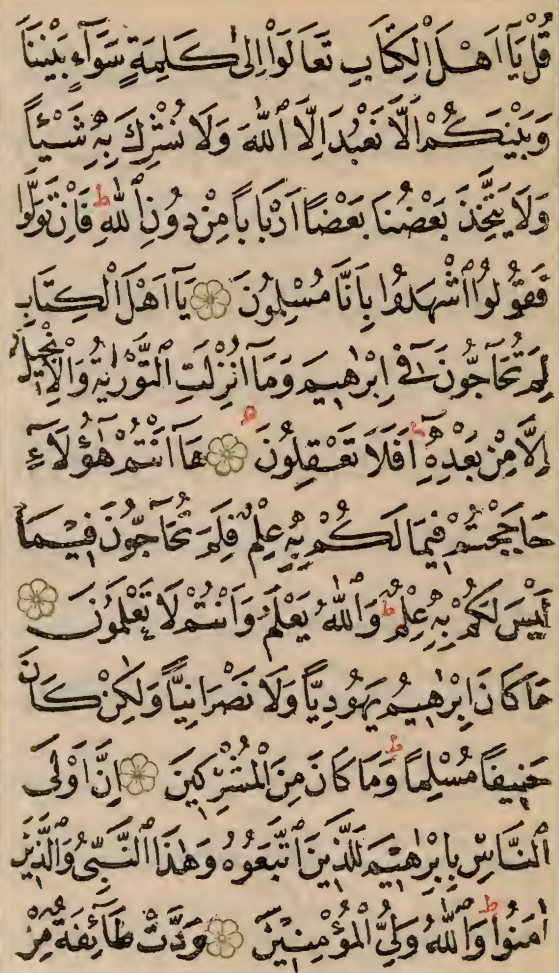 قُلْ يَٓا اَهْلَ الْكِتَابِ تَعَالَوْا اِلٰى كَلِمَةٍ سَوَٓاءٍ بَيْنَنَا
وَبَيْنَكُمْ اَلَّا نَعْبُدَ اِلَّا اللّٰهَ وَلَا نُشْرِكَ بِهٖ شَيْـًٔا
وَلَا يَتَّخِذَ بَعْضُنَا بَعْضًا اَرْبَابًا مِنْ دُونِ اللّٰهِ ط فَاِنْ تَوَلَّوْا
فَقُولُوا اشْهَدُوا بِاَنَّا مُسْلِمُونَ يَٓا اَهْلَ الْكِتَابِ
لِمَ تُحَٓاجُّونَ فٖٓى اِبْرٰهٖيمَ وَمَٓا اُنْزِلَتِ التَّوْرٰيةُ وَالْاِنْجٖيلُ
اِلَّا مِنْ بَعْدِهٖ ط اَفَلَا تَعْقِلُونَ هَٓا اَنْتُمْ هٰٓؤُلَٓاءِ
حَاجَجْتُمْ فٖيمَا لَكُمْ بِهٖ عِلْمٌ فَلِمَ تُحَٓاجُّونَ فٖيمَا
لَيْسَ لَكُمْ بِهٖ عِلْمٌ ط وَاللّٰهُ يَعْلَمُ وَاَنْتُمْ لَا تَعْلَمُونَ
مَا كَانَ اِبْرٰهٖيمُ يَهُودِيًّا وَلَا نَصْرَانِيًّا وَلٰكِنْ كَانَ
حَنٖيفًا مُسْلِمًا ط وَمَا كَانَ مِنَ الْمُشْرِكٖينَ اِنَّ اَوْلَى
النَّاسِ بِاِبْرٰهٖيمَ لَلَّذٖينَ اتَّبَعُوهُ وَهٰذَا النَّبِىُّ وَالَّذٖينَ
اٰمَنُوا ط وَاللّٰهُ وَلِىُّ الْمُؤْمِنٖينَ وَدَّتْ طَٓائِفَةٌ مِنْ